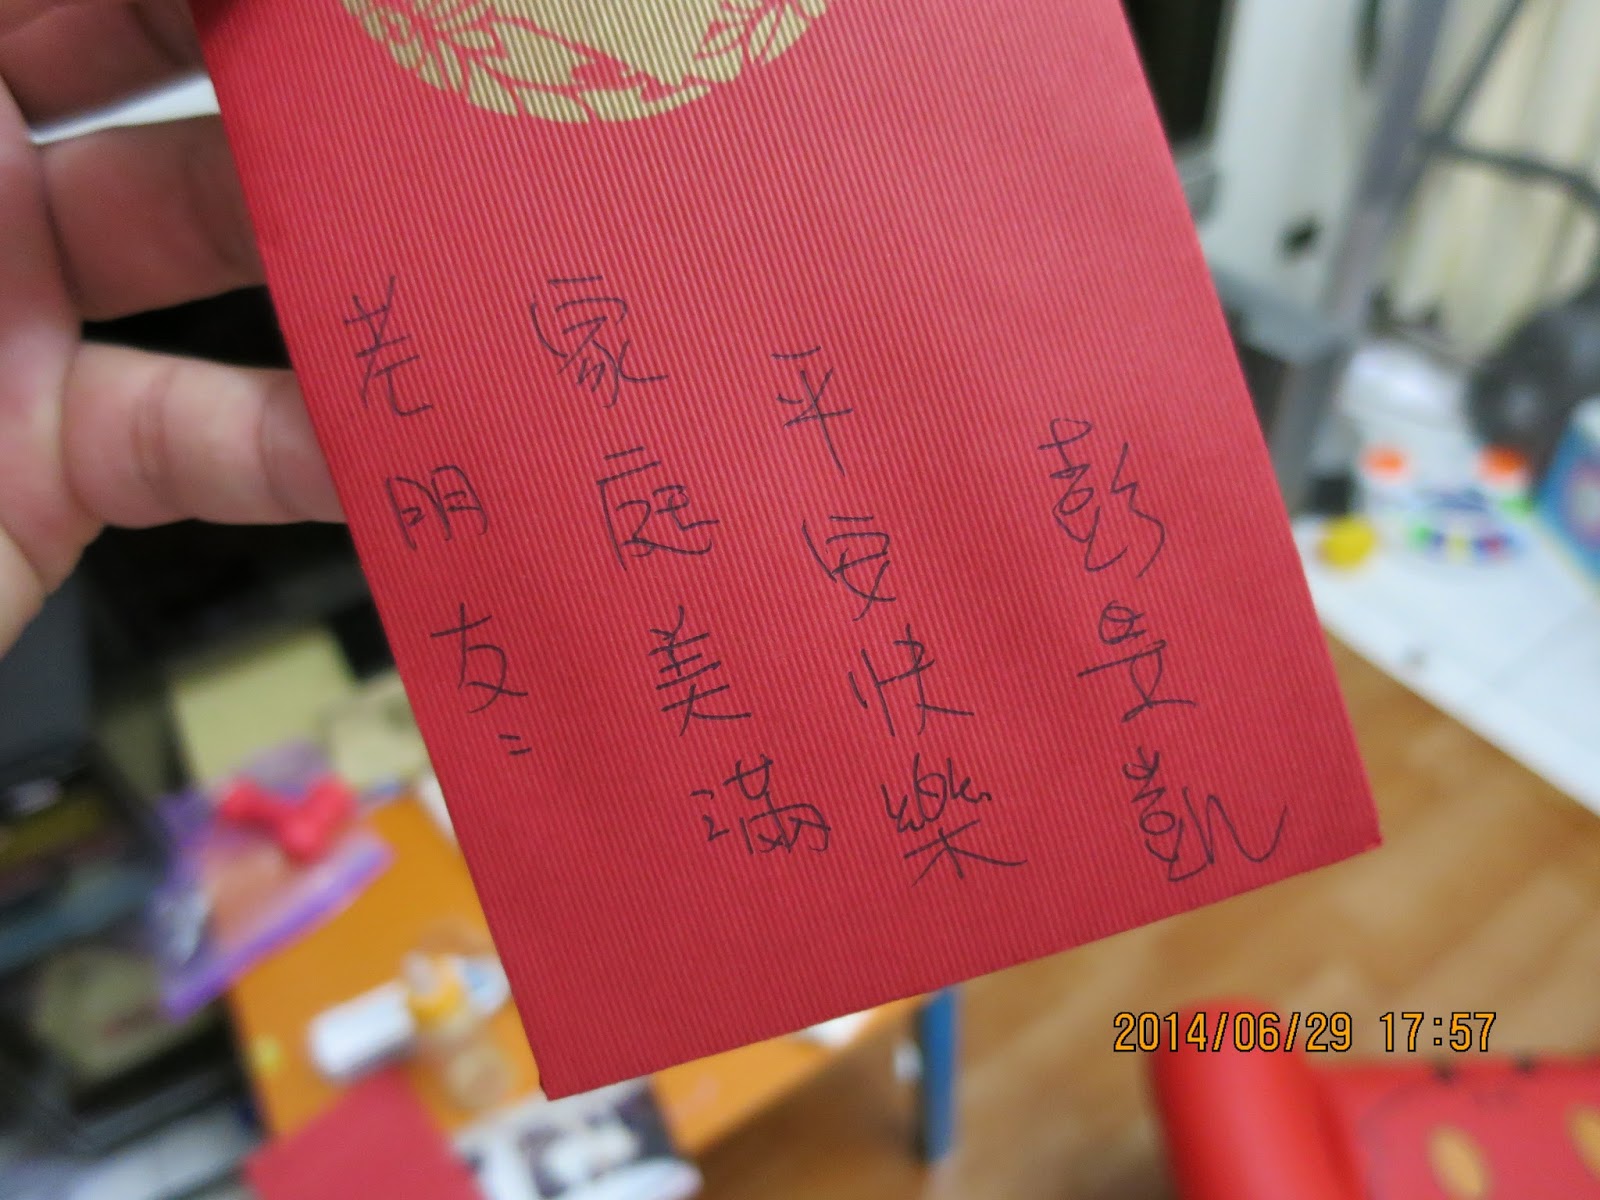 老朋友:
家庭美滿
平安快樂
彭旻凱
2014/06/29 17:57